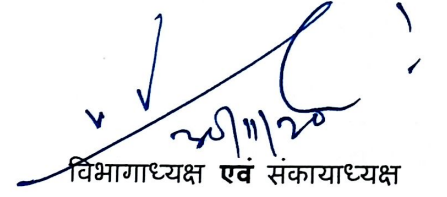 20/11/20
विभागाध्यक्ष एवं संकायाध्यक्ष